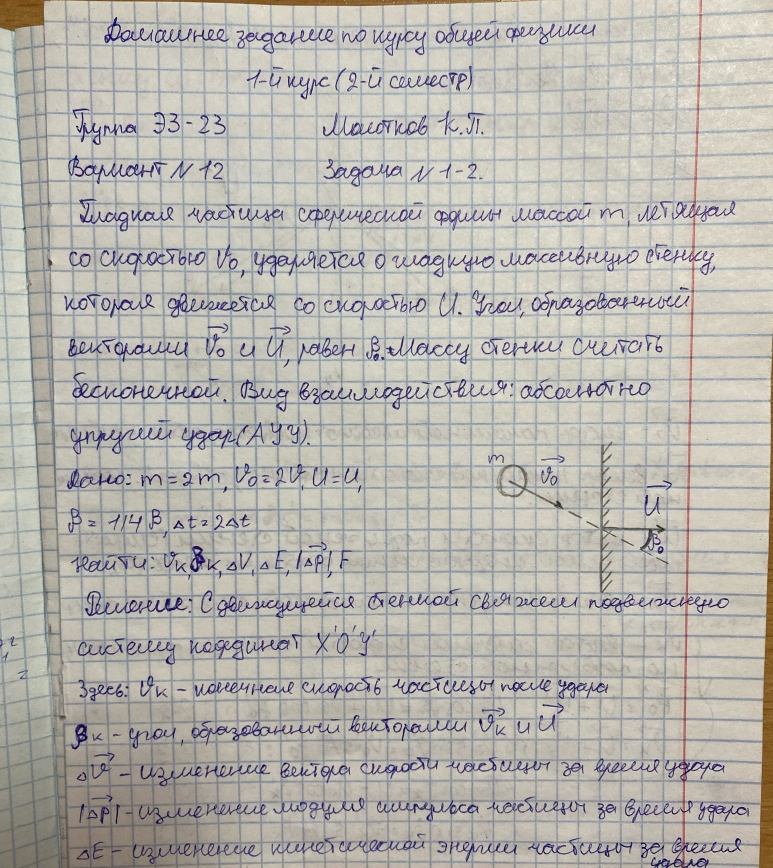 Домашнее задание по курсу общей физики
1-й курс (2-й семестр)
Группа ЭЗ-23 Молотков К.П.
Вариант №12 Задача №1-2.
Гладкая частица сферической формы массой m, летящая
со скоростью υ₀, ударяется о гладкую массивную стенку,
которая движется со скоростью U. Угол, образованный
векторами υ₀⃗ и U⃗, равен β₀. Массу стенки считать
бесконечной. Вид взаимодействия: абсолютно
упругий удар (АУУ).
m υ₀⃗ U⃗ β₀
Дано: m = 2m, υ₀ = 2υ, U = U,
β = 1/4 β, Δt = 2Δt
Найти: υк, βк, ΔV, ΔE, |ΔP⃗|, F
Решение: С движущейся стенкой свяжем подвижную
систему координат X'O'Y'
Здесь: υк – конечная скорость частицы после удара
βк – угол, образованный векторами υк⃗ и U⃗
Δυ⃗ – изменение вектора скорости частицы за время удара
|ΔP⃗| – изменение модуля импульса частицы за время удара
ΔE – изменение кинетической энергии частицы за время
удара